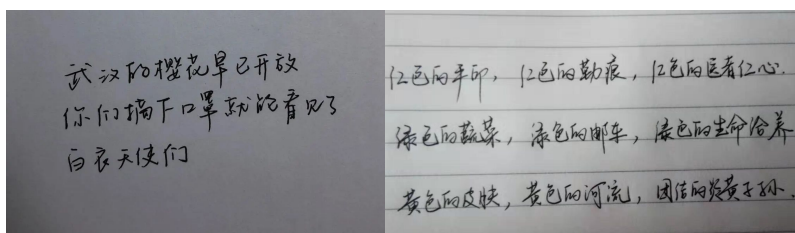 武汉的樱花早已开放
你们摘下口罩就能看见了
白衣天使们
红色的手印，红色的勒痕，红色的医者仁心.
绿色的蔬菜，绿色的邮车，绿色的生命给养
黄色的皮肤，黄色的河流，团结的炎黄子孙.